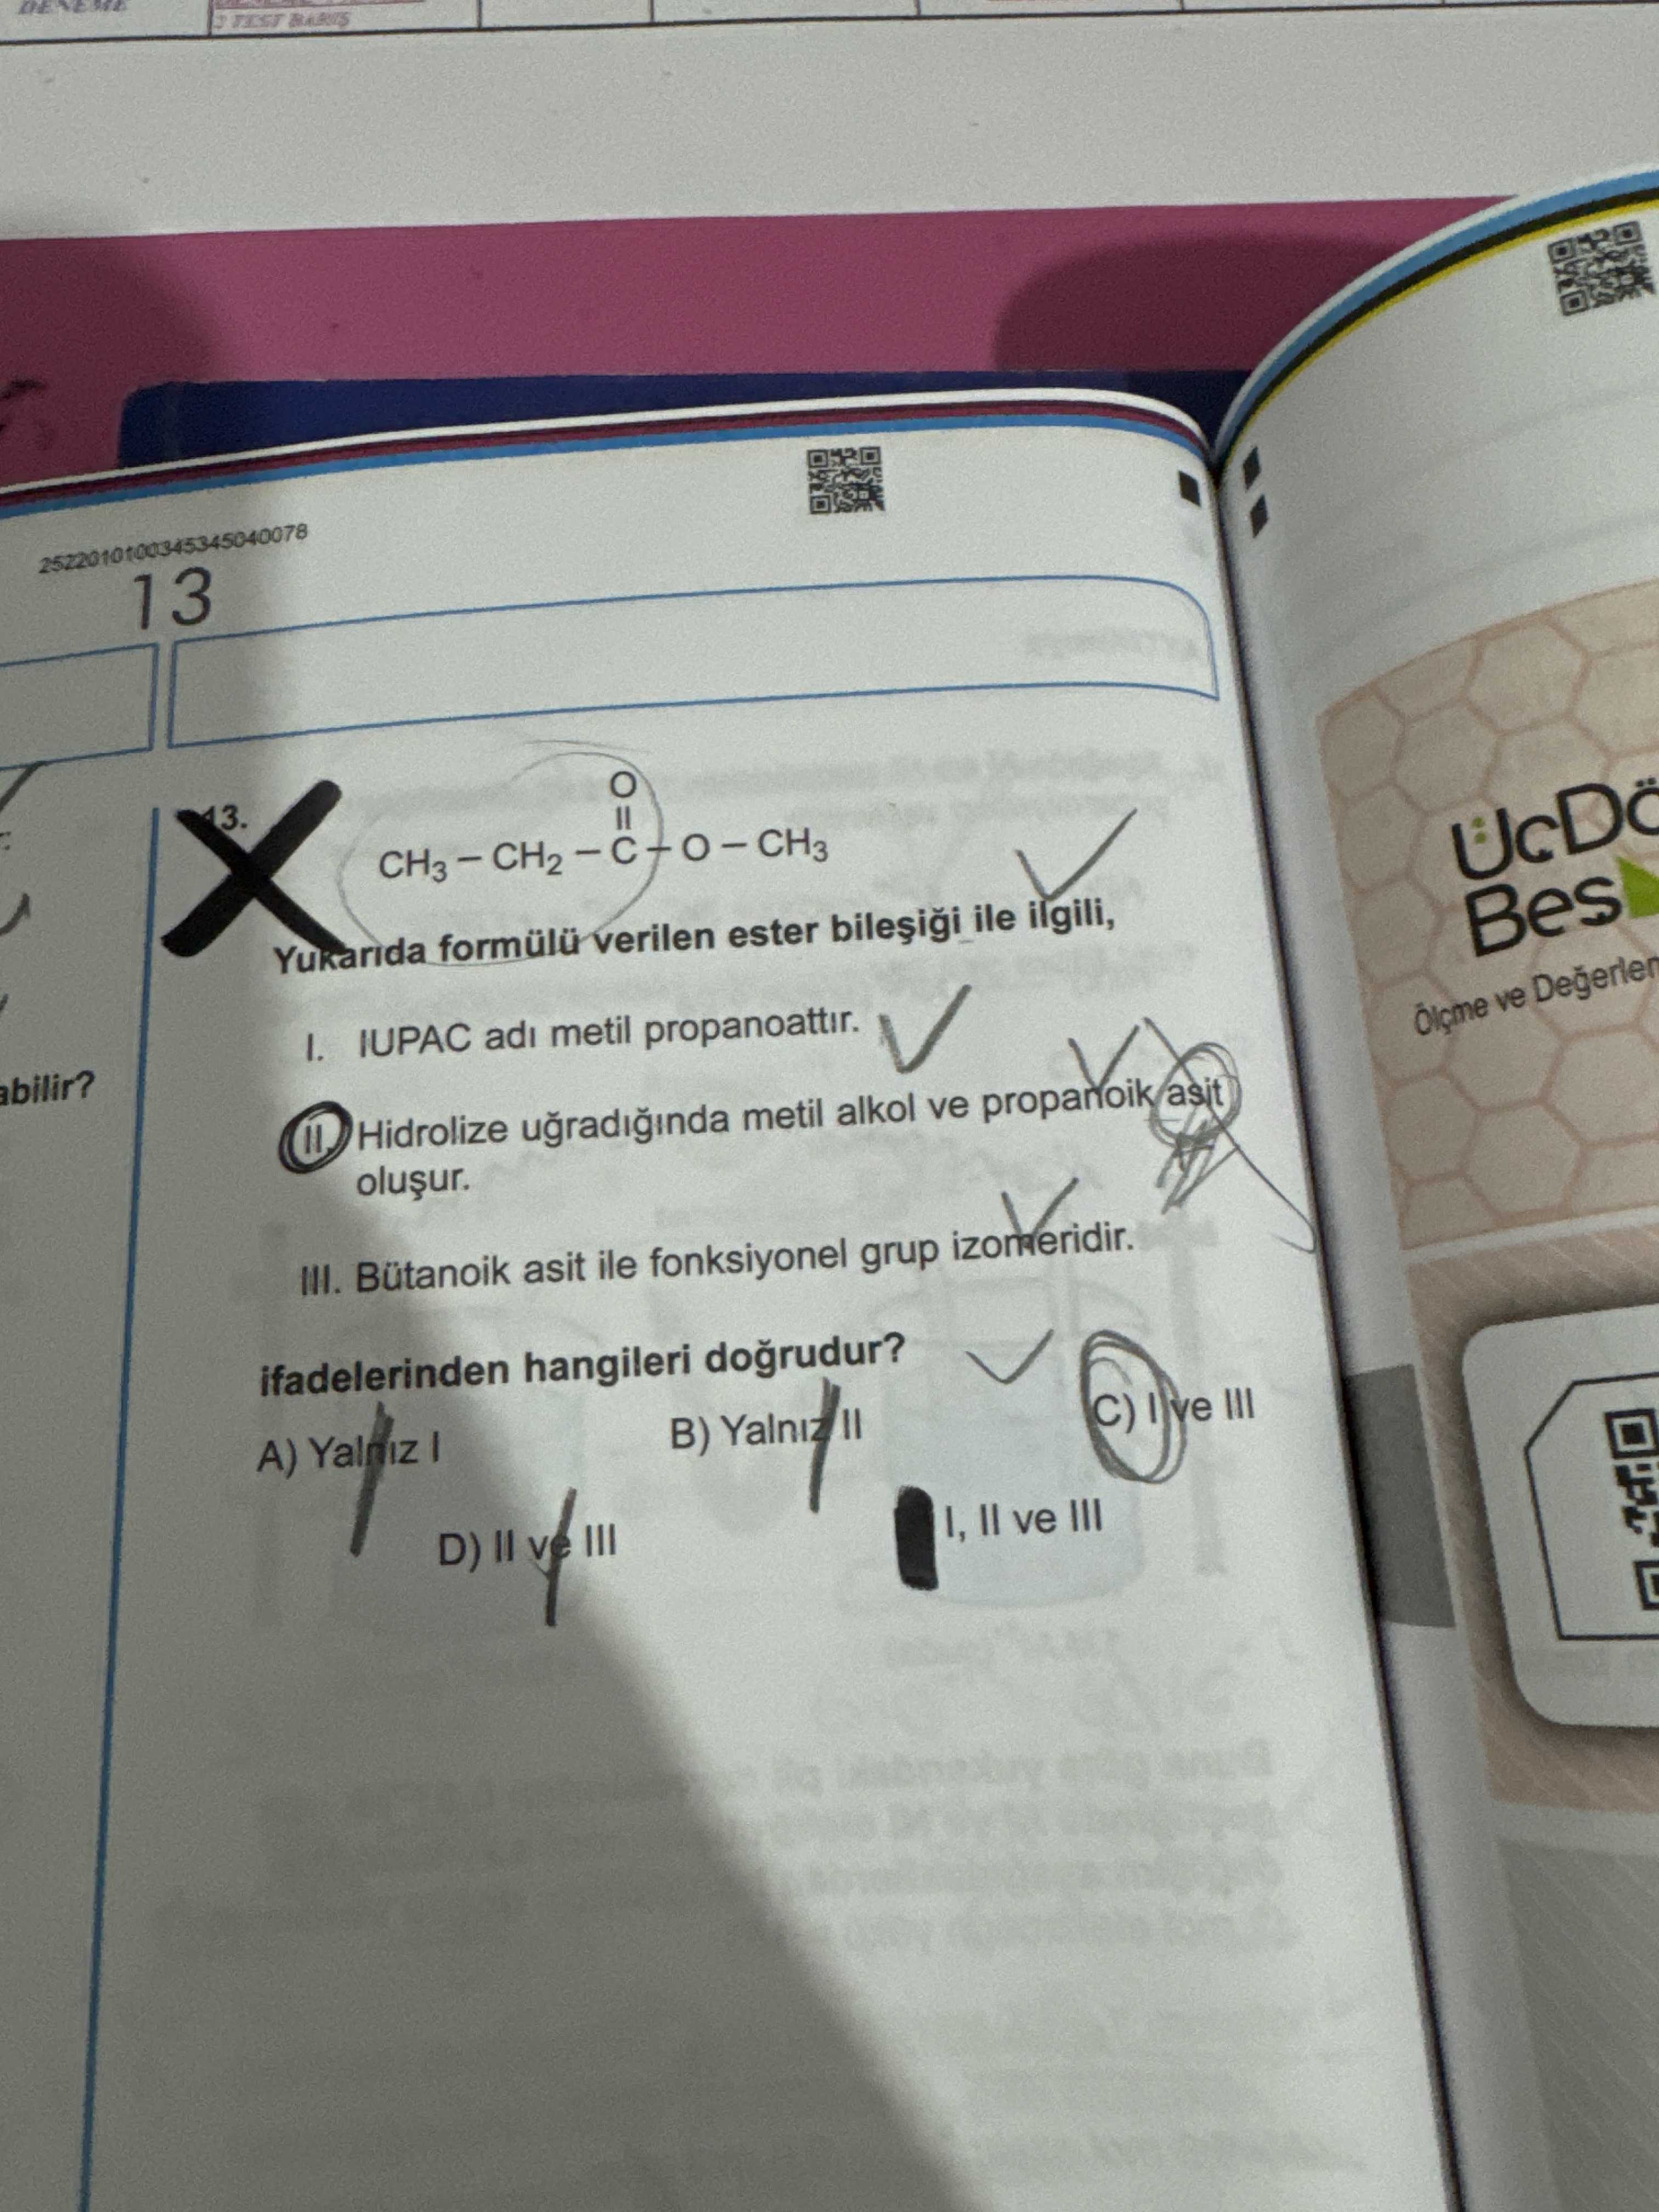 DENEME
3 TEST BARIŞ
2522010100345345040078
13
abilir?
13.
O
CH3 – CH2 – C – O – CH3
Yukarıda formülü verilen ester bileşiği ile ilgili,
I. IUPAC adı metil propanoattır.
II. Hidrolize uğradığında metil alkol ve propanoik asit
oluşur.
III. Bütanoik asit ile fonksiyonel grup izomeridir.
ifadelerinden hangileri doğrudur?
A) Yalnız I
B) Yalnız II
C) I ve III
D) II ve III
I, II ve III
ÜçDö
Beş
Ölçme ve Değerlen